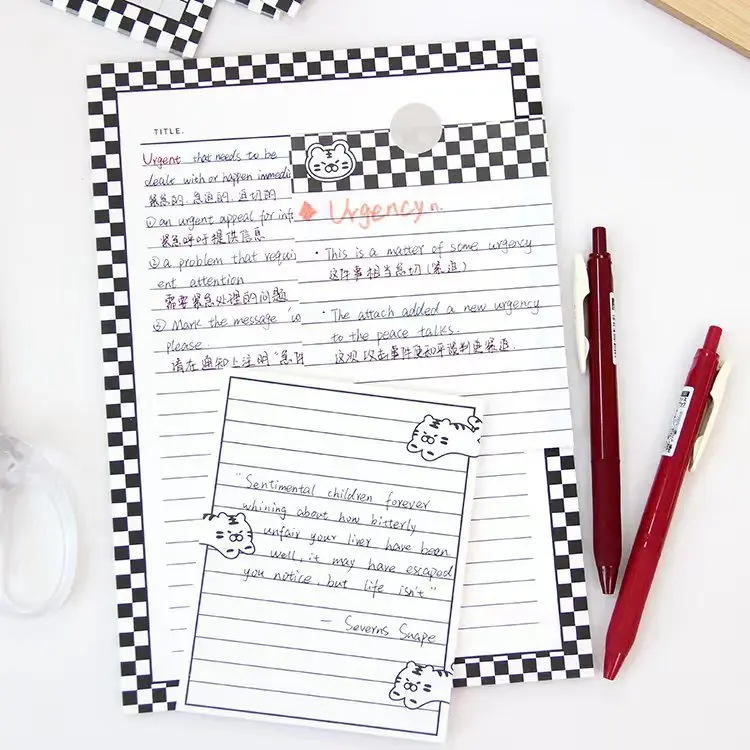 TITLE.
Urgent that needs to be
dealt with or happen immedi
紧急的,急迫的,迫切的
① an urgent appeal for inf
紧急呼吁提供信息
② a problem that requi
ent attention
需要紧急处理的问题
③ Mark the message 'u
please.
请在通知上注明“急件
Urgency n.
· This is a matter of some urgency
这件事相当急切(紧迫)
· The attach added a new urgency
to the peace talks.
这次攻击事件使和平谈判更紧迫.
"Sentimental children forever
whining about how bitterly
unfair your liver have been
well, it may have escaped
you notice, but life isn't"
— Severns Snape